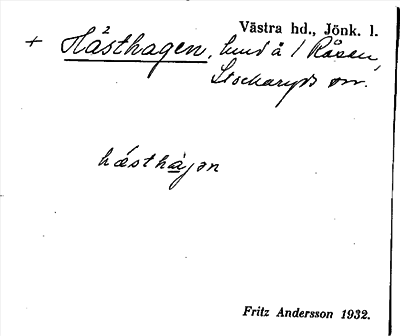 Västra hd., Jönk. l.
+ Hästhagen, lund å 1 Råsen,
Stockaryds sn.
hästhajən
Fritz Andersson 1932.